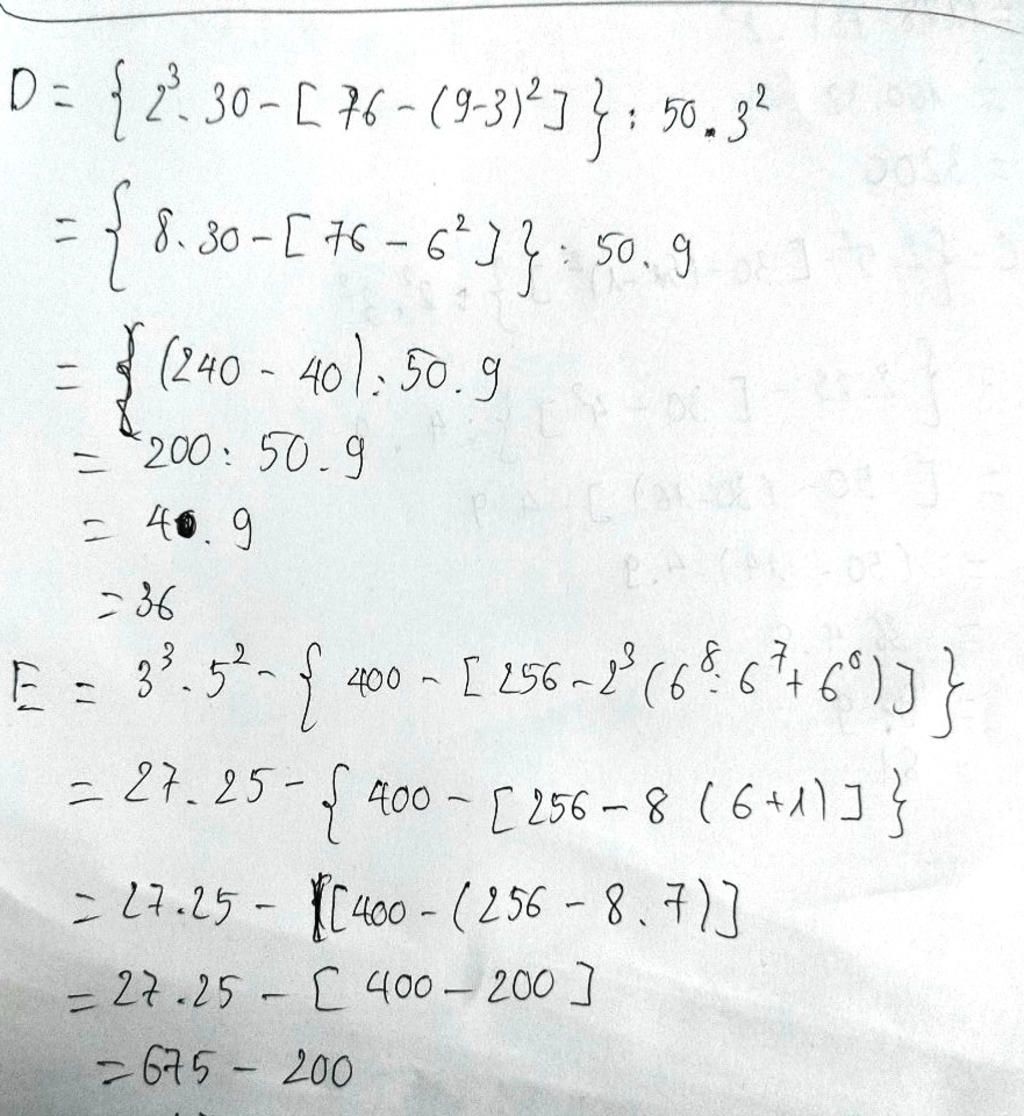 D = { 2³. 30 - [ 76 - (9-3)² ] } : 50 . 3²
= { 8. 30 - [ 76 - 6² ] } : 50. 9
= (240 - 40) : 50. 9
= 200 : 50. 9
= 4. 9
= 36
E = 3³. 5² - { 400 - [ 256 - 2³ (6⁸: 6⁷ + 6⁰) ] }
= 27. 25 - { 400 - [ 256 - 8 ( 6 +1) ] }
= 27.25 - [400 - (256 - 8. 7)]
= 27.25 - [ 400 - 200 ]
= 675 - 200